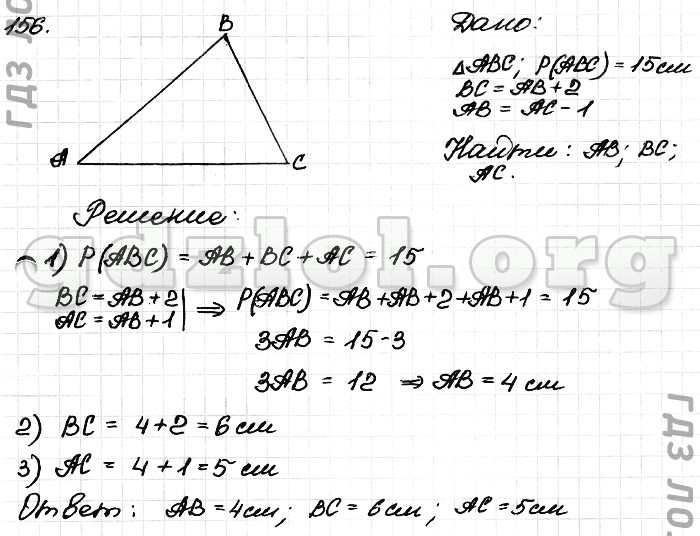 156.
B
A
C
Дано:
△ABC; P(ABC) = 15 см
BC = AB + 2
AB = AC - 1
Найти: AB; BC;
AC.
Решение:
1) P(ABC) = AB + BC + AC = 15
BC = AB + 2 | ⇒ P(ABC) = AB + AB + 2 + AB + 1 = 15
AC = AB + 1 |
3AB = 15 - 3
3AB = 12 ⇒ AB = 4 см
2) BC = 4 + 2 = 6 см
3) AC = 4 + 1 = 5 см
Ответ: AB = 4 см; BC = 6 см; AC = 5 см
gdzlol.org
ГДЗ ло
ГДЗ ло.